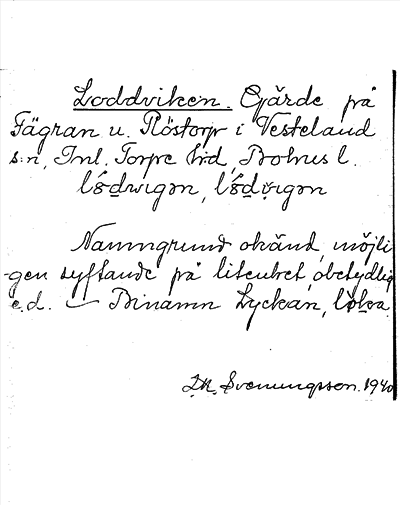 Loddviken. Gjärde på
Fägran u. Röstorp i Vesteland
s:n, Inl. Torpe hrd, Bohus l.
Namngrund okänd, möjli
-gen syftande på litenhet, obetydlig
e.d. — Binamn Lyckan,
Svenungsson. 1940